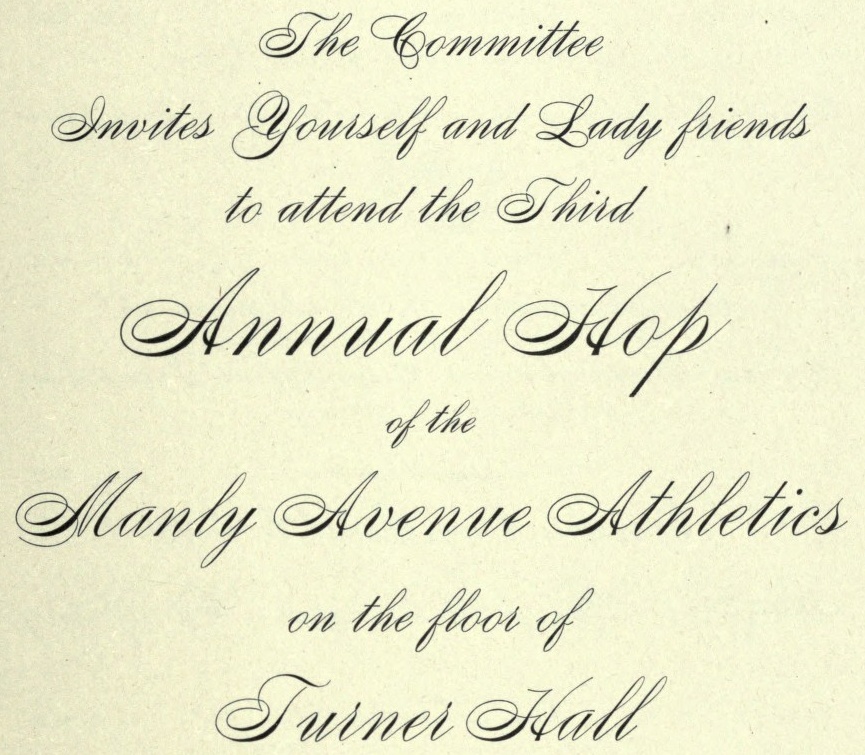 The Committee
Invites Yourself and Lady friends
to attend the Third
Annual Hop
of the
Manly Avenue Athletics
on the floor of
Turner Hall